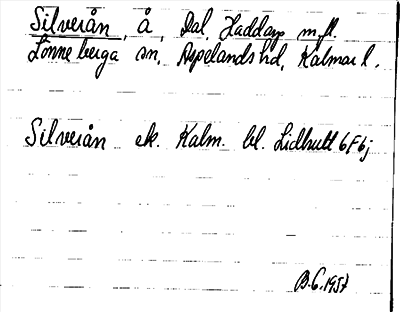 Silverån, å, Dal, Haddarp m.fl.
Lönneberga sn, Aspelands hd, Kalmar l.
Silverån ek. Kalm. bl. Lidhult 6F6j
B.G. 1957